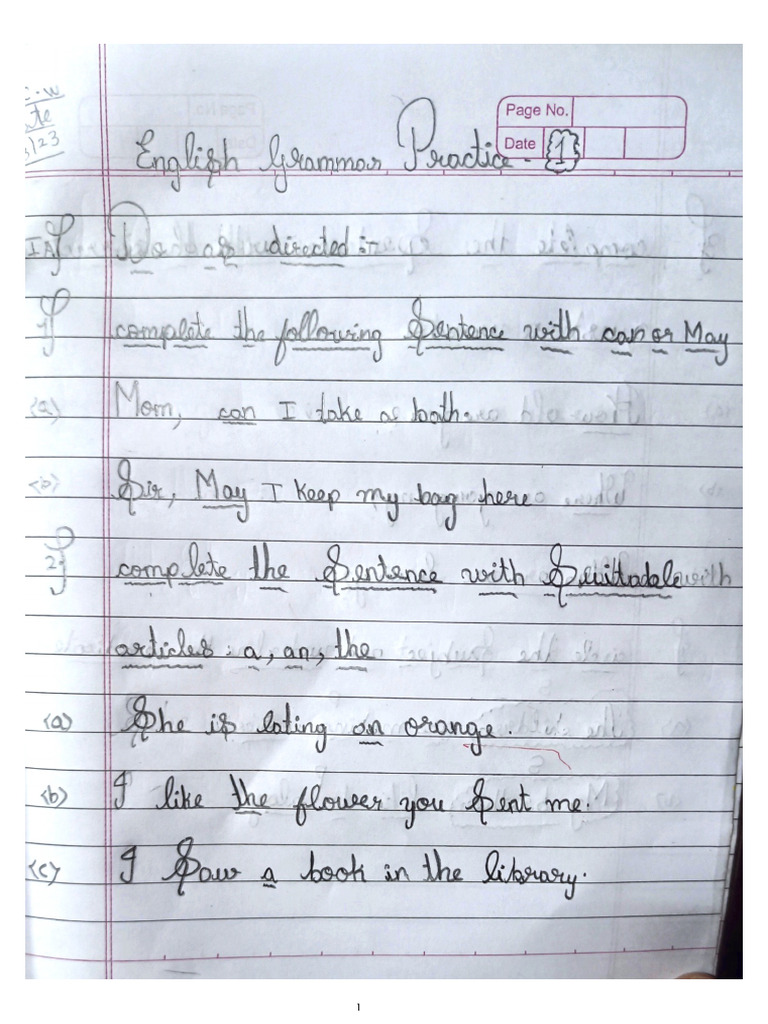 C.W
Page No.
Date 1
/23
English Grammar Practice - 1
IA Do as directed :-
1 complete the following Sentence with can or May
(a) Mom, can I take a bath.
(b) Sir, May I Keep my bag here
2 complete the Sentence with Suitadale
articles : a, an, the
(a) She is eating an orange.
(b) I like the flower you Sent me.
(c) I Saw a book in the library.
1